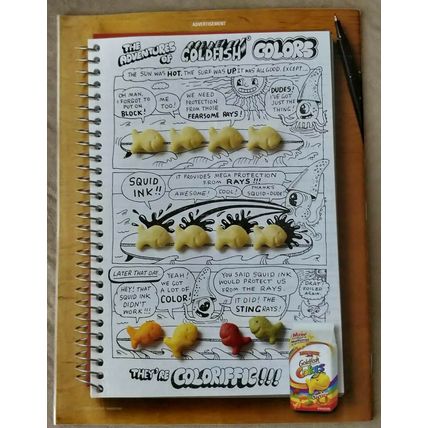 ADVERTISEMENT
THE ADVENTURES OF GOLDFISH COLORS
THE SUN WAS HOT. THE SURF WAS UP. IT WAS ALL GOOD. EXCEPT...
OH MAN,
I FORGOT TO
PUT ON
BLOCK!
ME
TOO!
WE NEED
PROTECTION
FROM THOSE
FEARSOME RAYS!
DUDES!
I'VE GOT
JUST THE
THING!
SQUID
INK!!
IT PROVIDES MEGA PROTECTION
FROM RAYS!!!
AWESOME!
COOL!
THANKS
SQUID-DUDE!
LATER THAT DAY...
HEY! THAT
SQUID INK
DIDN'T
WORK!!!
YEAH
WE GOT
A LOT OF
COLOR!
YOU SAID SQUID INK
WOULD PROTECT US
FROM THE RAYS.
IT DID! THE
STING RAYS!
DRAT
FOILED
AGAIN.
THEY'RE COLORIFFIC!!!
Goldfish
Colors